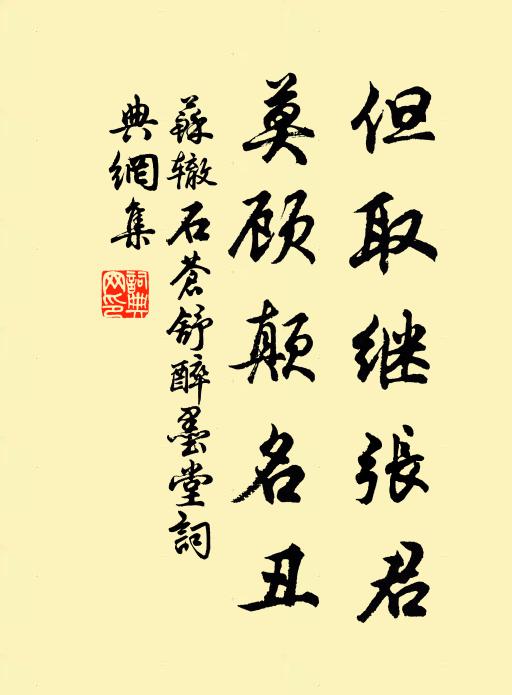 但取继張君
莫顾颠名丑
蘇辙石蒼舒醉墨堂詞
典網集
詞典网印